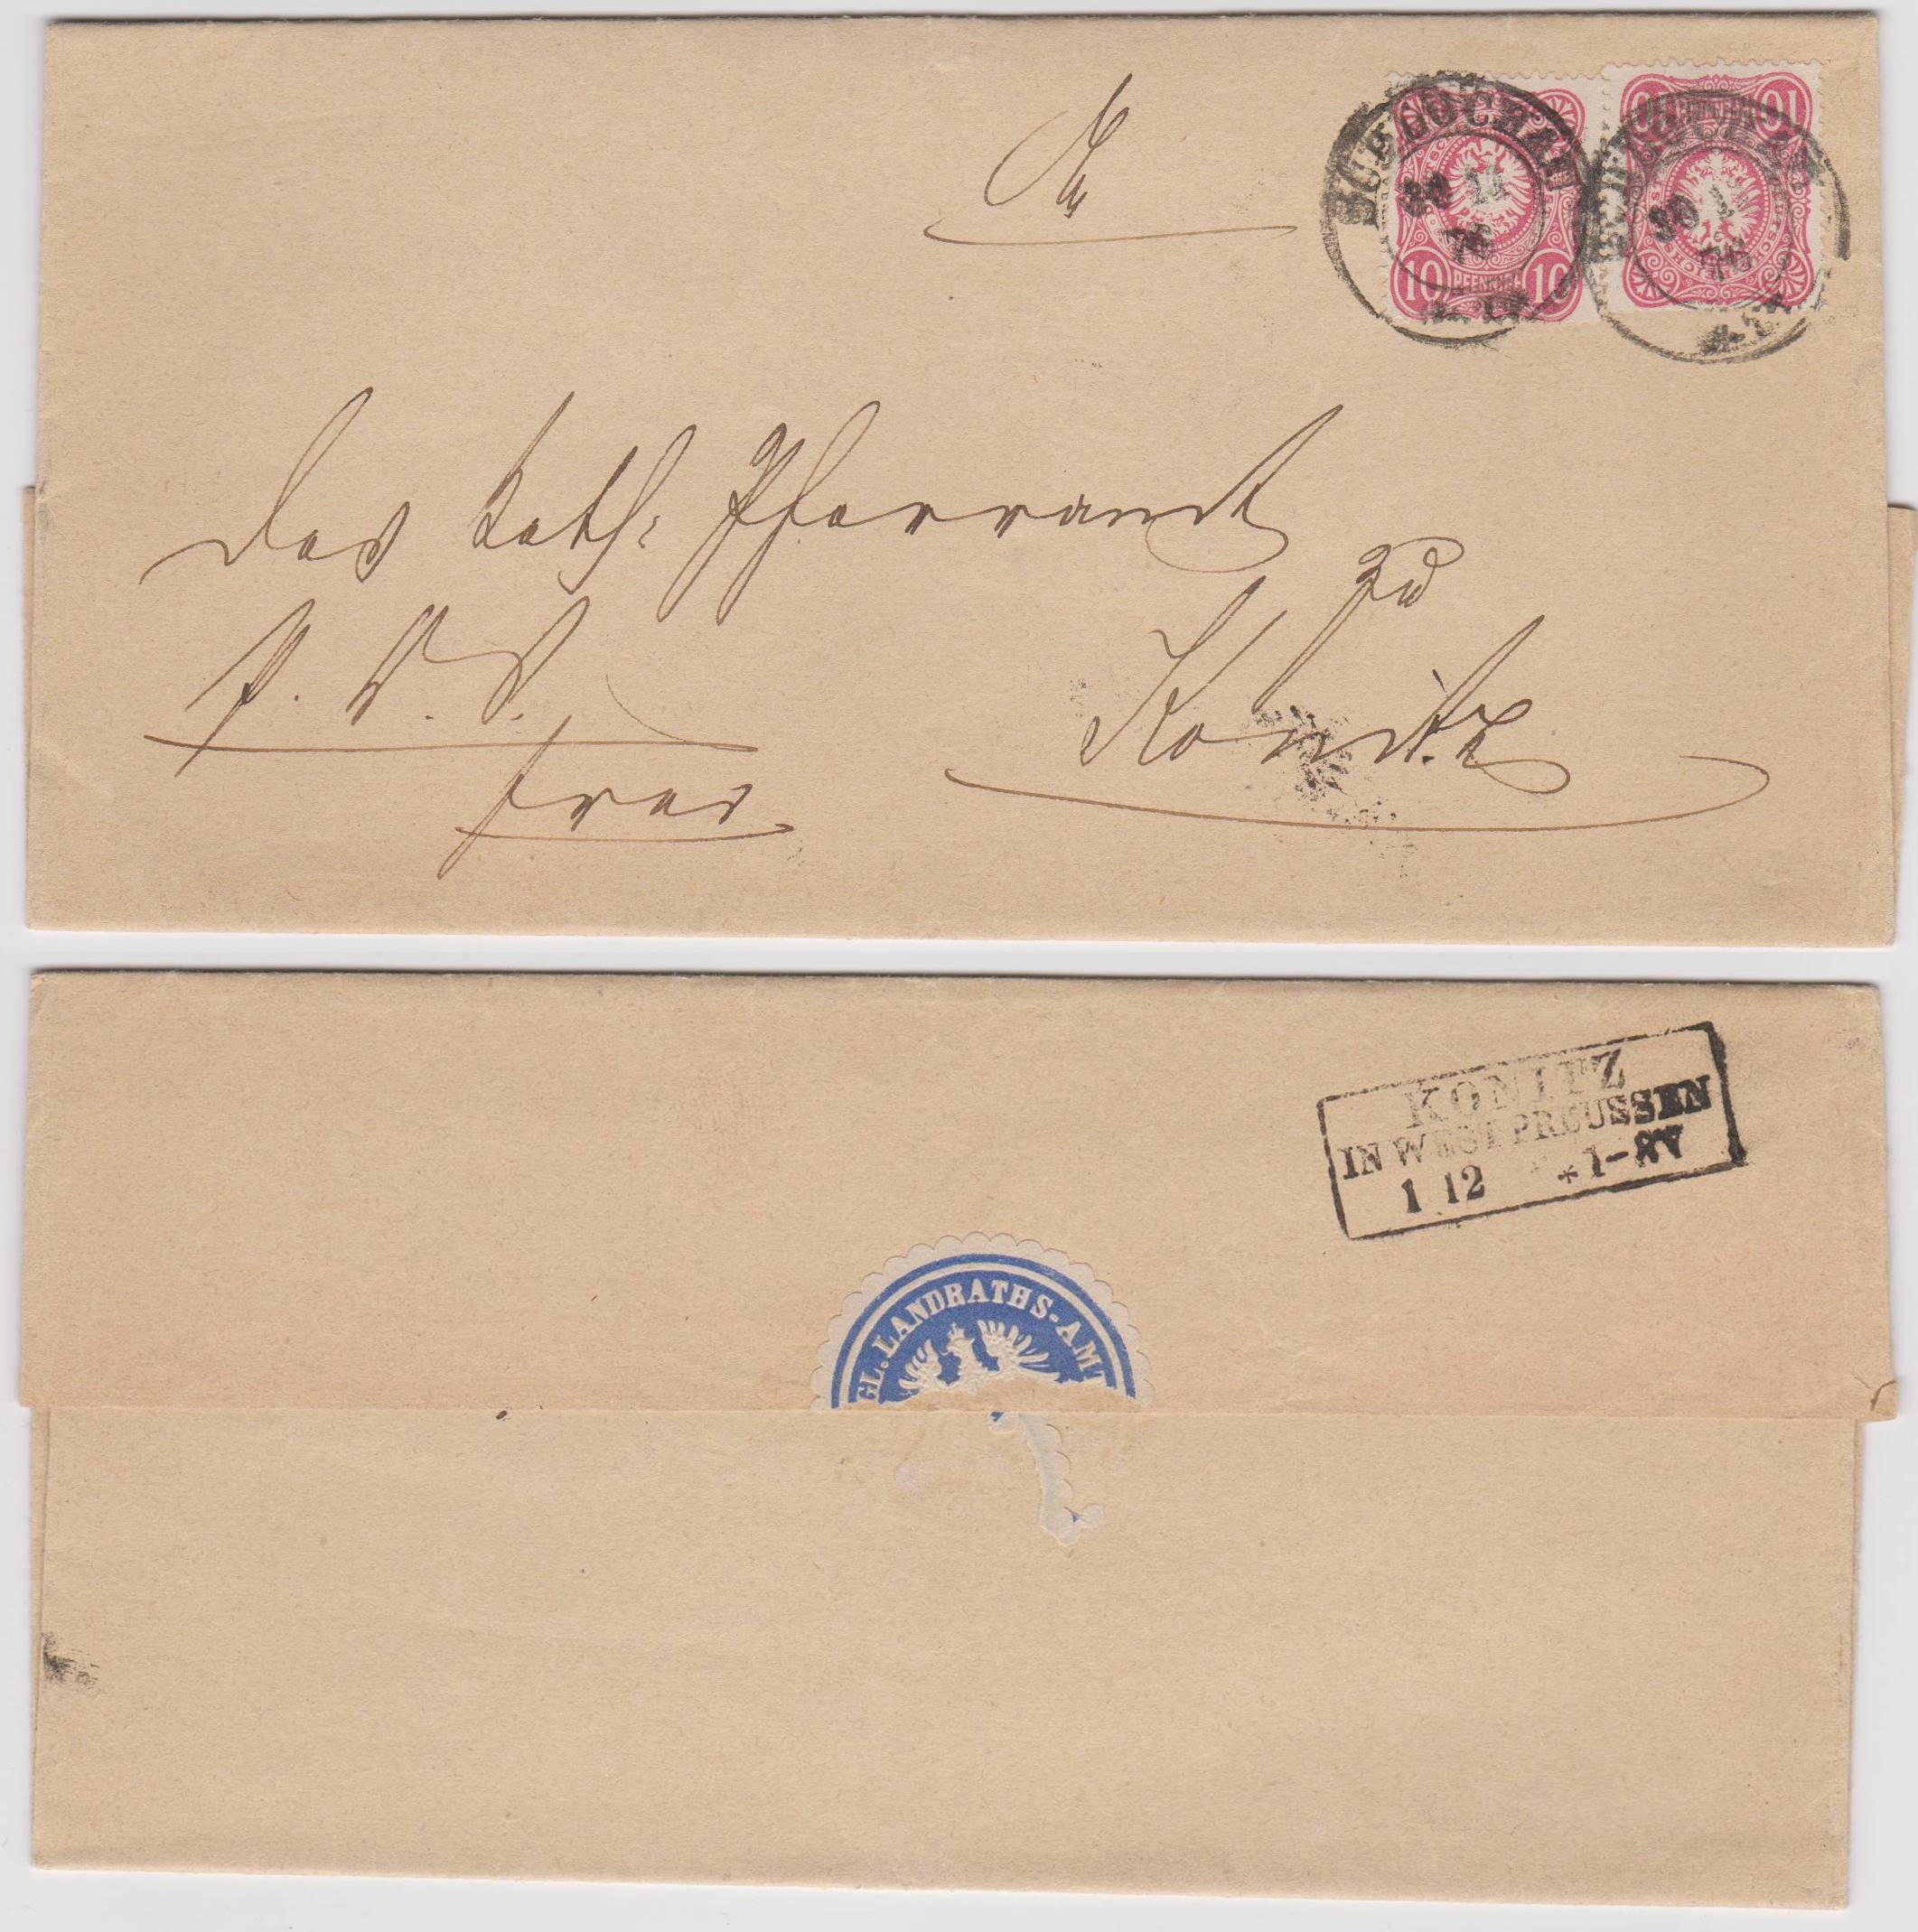 An
SCHLOCHAU
30 11
76
10 PFENNIG 10
SCHLOCHAU
30 11
76
10 PFENNIG 10
das kath: Pfarramt
zu
Konitz
frei
KONITZ
IN WESTPREUSSEN
1 12 *1-8V
GL. LANDRATHS-AMT